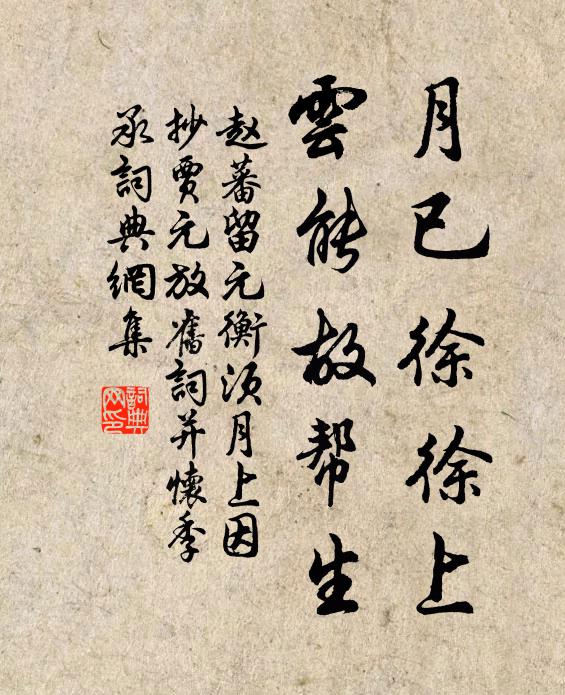 月已徐徐上
雲能故帮生
赵蕃留元衡须月上因
抄賈元放舊詞并懷季
承詞典網集
詞典
网印